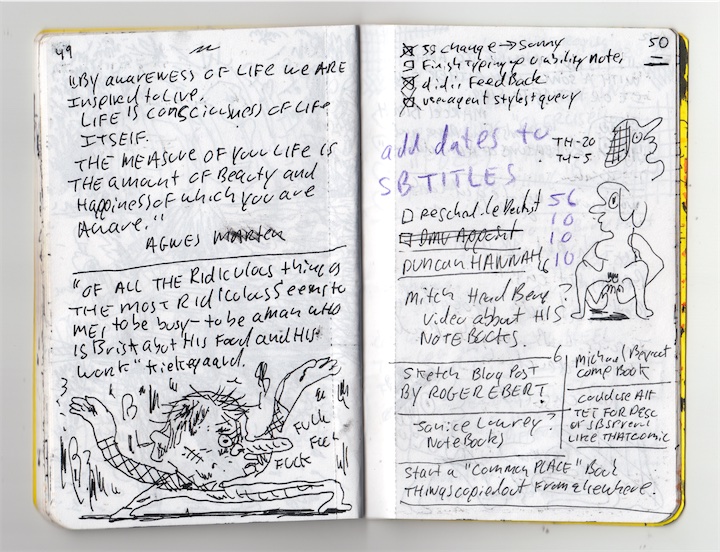 49
"By awareness of life we are
inspired to live.
Life is consciousness of life
itself.
The measure of your life is
the amount of beauty and
happiness of which you are
aware."
Agnes Marten
"Of all the ridiculous things
the most ridiculous seems to
me, to be busy - to be a man who
is brisk about his food and his
work" Kiekegaard.
Fuck
Fuck
Fuck
50
SS change → Sunny
Finish typing up viability notes
didi's Feedback
useragent stylest query
add dates to
SB TITLES
TH-20
TH-5
Reschedule Dentist
DMV Appoint
Duncan Hannah
56
10
10
6 10
Mitch Hedberg ?
video about his
notebooks.
Sketch Blog Post
by Roger Ebert
6
Michael Bierut
Comp Book
could use Alt
text for desc
of SB Spread
like that comic
Janice Lowrey ?
Notebooks
Start a "Common Place" Book
Things copied out from elsewhere.